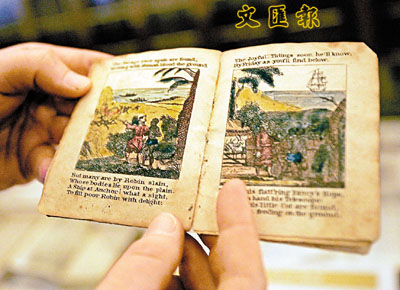 文匯報
The Savages soon upon are found,
blood the ground.
But many are by Robin slain,
Whose bodies lie upon the plain.
A Ship at Anchor! what a sight,
To fill poor Robin with delight!
The Joyful Tidings soon he'll know,
By Friday as you'll find below.
his flatt'ring Fancy's Hope,
hand his Telescope
his little Cot are
feeding on the ground.